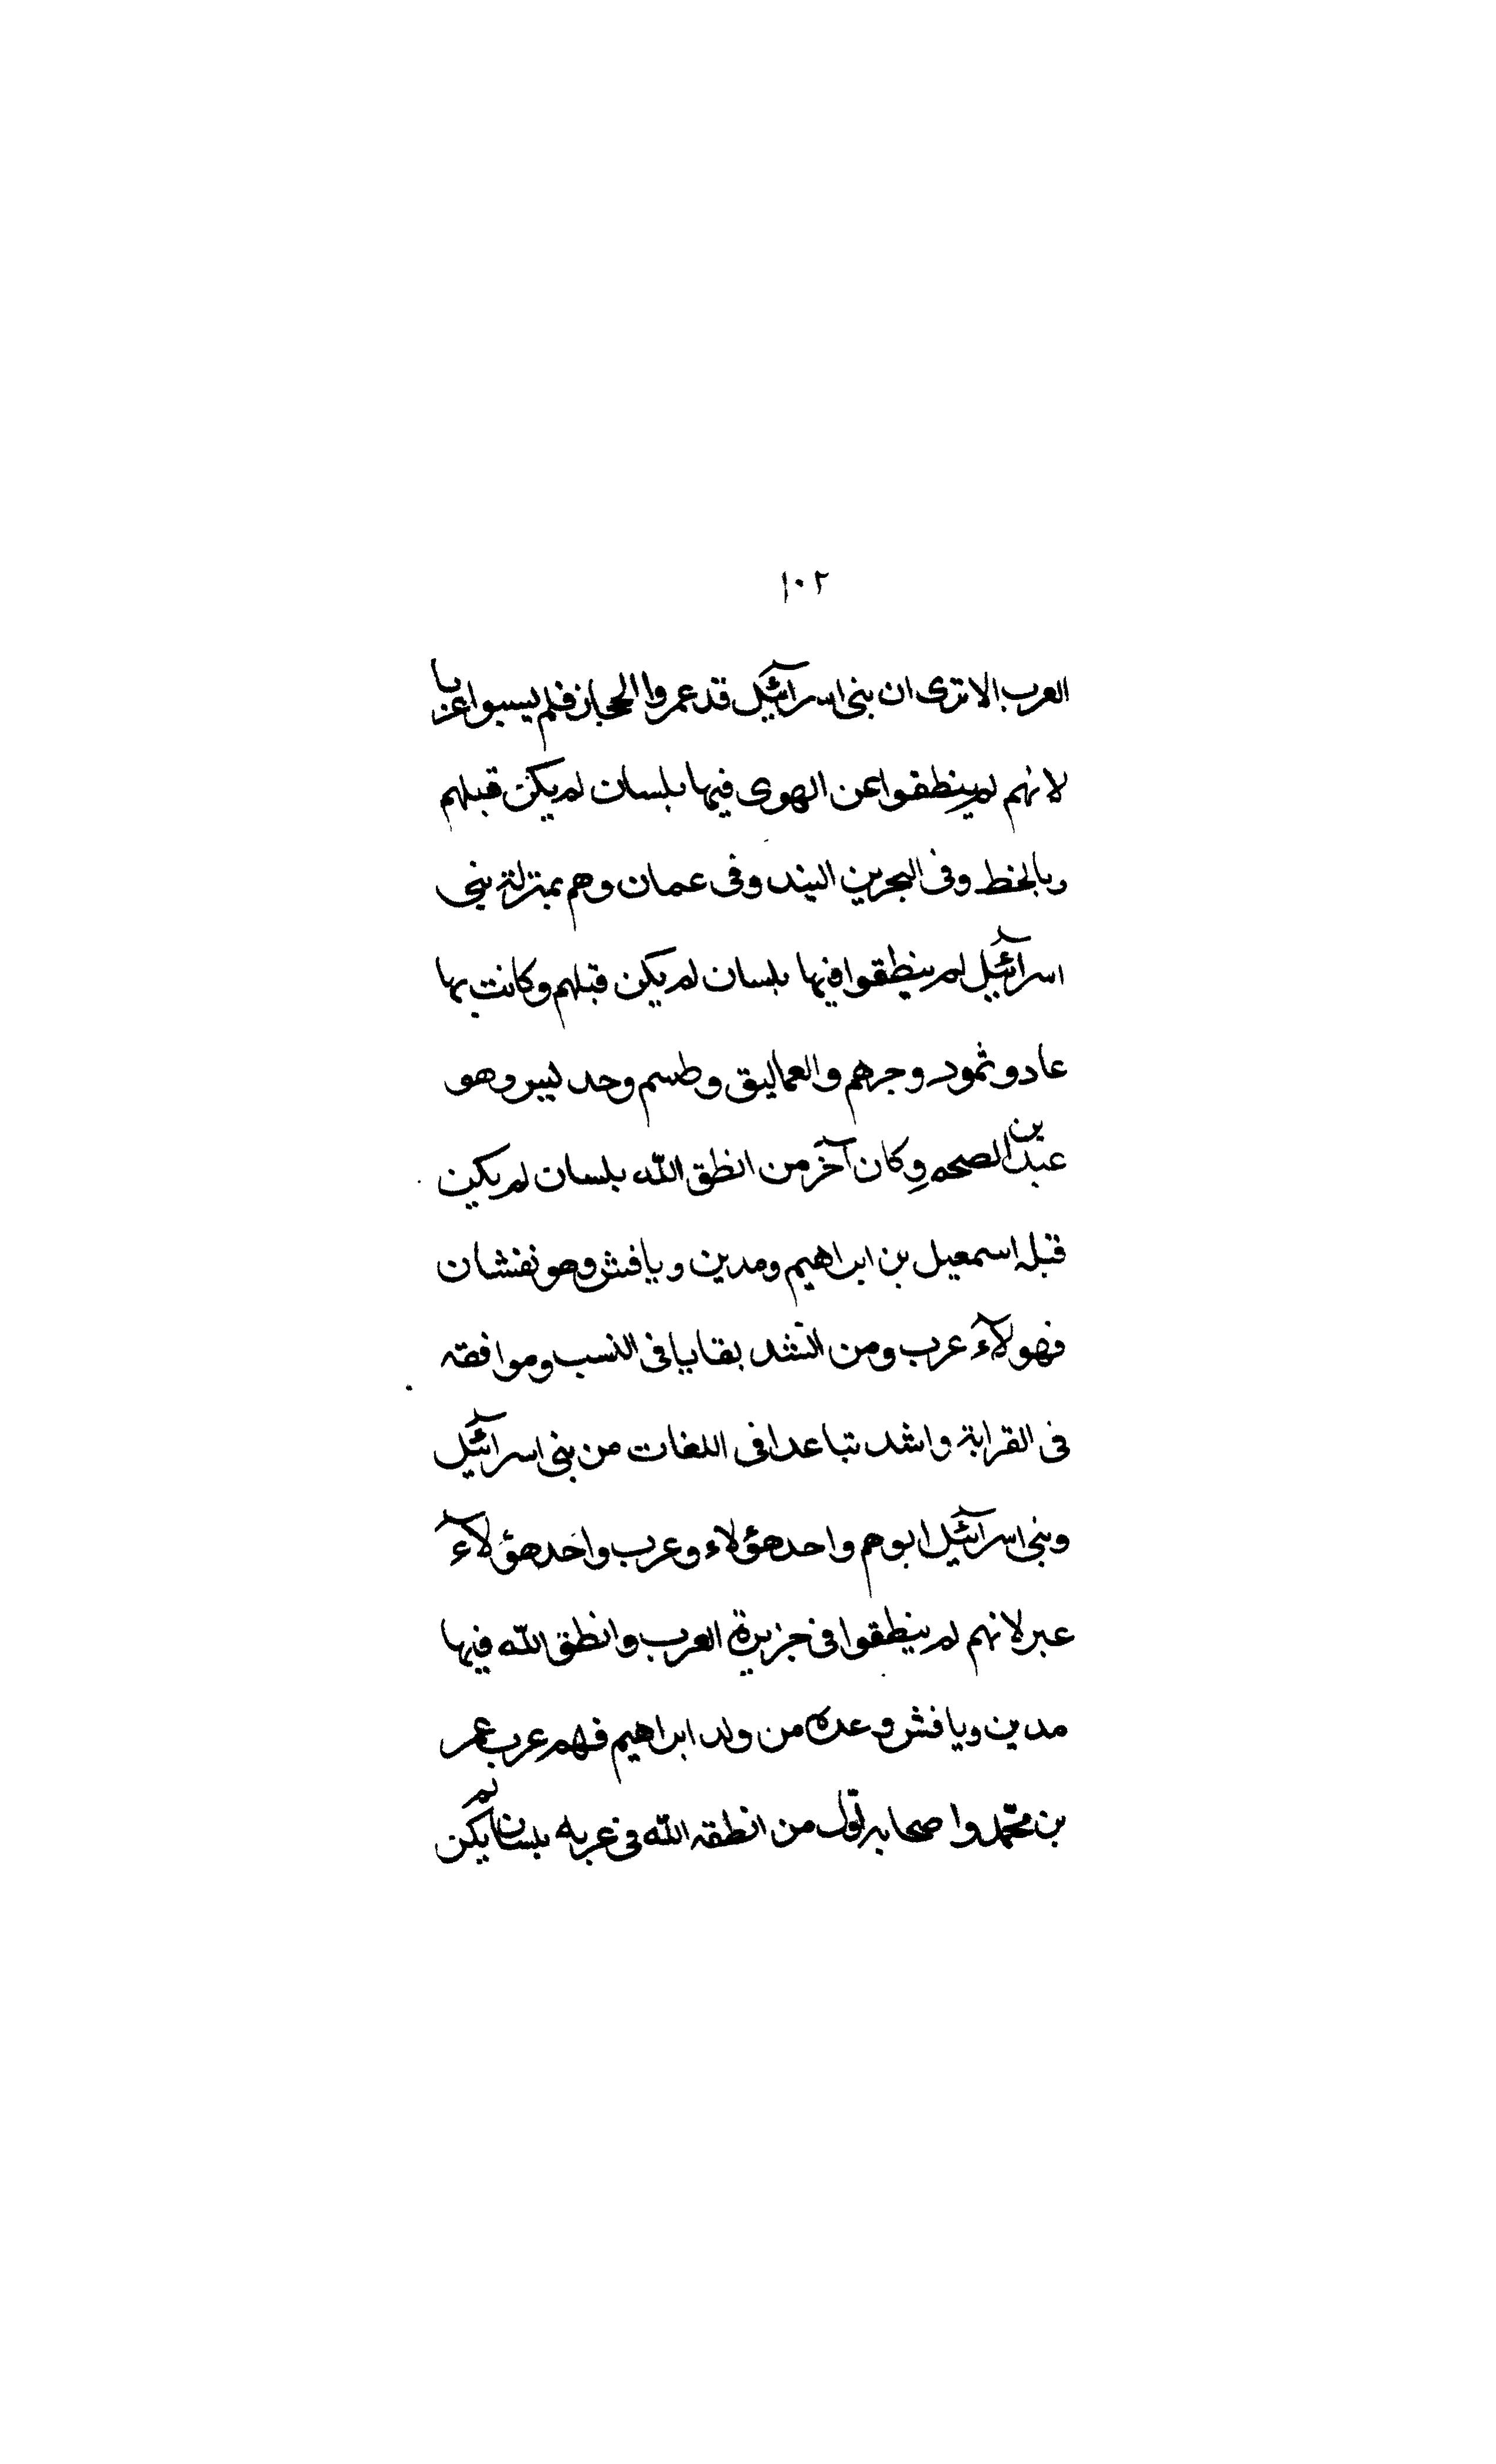 ١٠٢
العرب الا ترى ان بنى اسرآئيل قد عمروا الحجاز فلم يسبوا عربا
لانهم لم ينطقوا عن الهوى فيها بلسان لم يكن قبلهم
وبالخط وفى البحرين اليند وفى عمان وهم بمنزلة بنى
اسرآئيل لم ينطقوا فيها بلسان لم يكن قبلهم وكانت بها
عاد وثمود وجرهم والعماليق وطسم وجد ليس وهو
بن عبد الصحم وكان آخر من انطق الله بلسان لم يكن
قبله اسمعيل بن ابراهيم ومدين ويافش وهو نفشان
فهولآء عرب ومن اشد بقايا فى النسب وموافقه
فى القرابة واشد تباعدا فى اللغات من بنى اسرآئيل
وبنى اسرآئيل ابوهم واحد هؤلاء وعرب واحد هؤلآء
عبر لانهم لم ينطقوا فى جزيرة العرب وانطق الله فيها
مدين ويافش وعده من ولد ابراهيم فهم عرب عمر
بن محمد واصحابه قول من انطقه الله فى عربه بلسان لم يكن